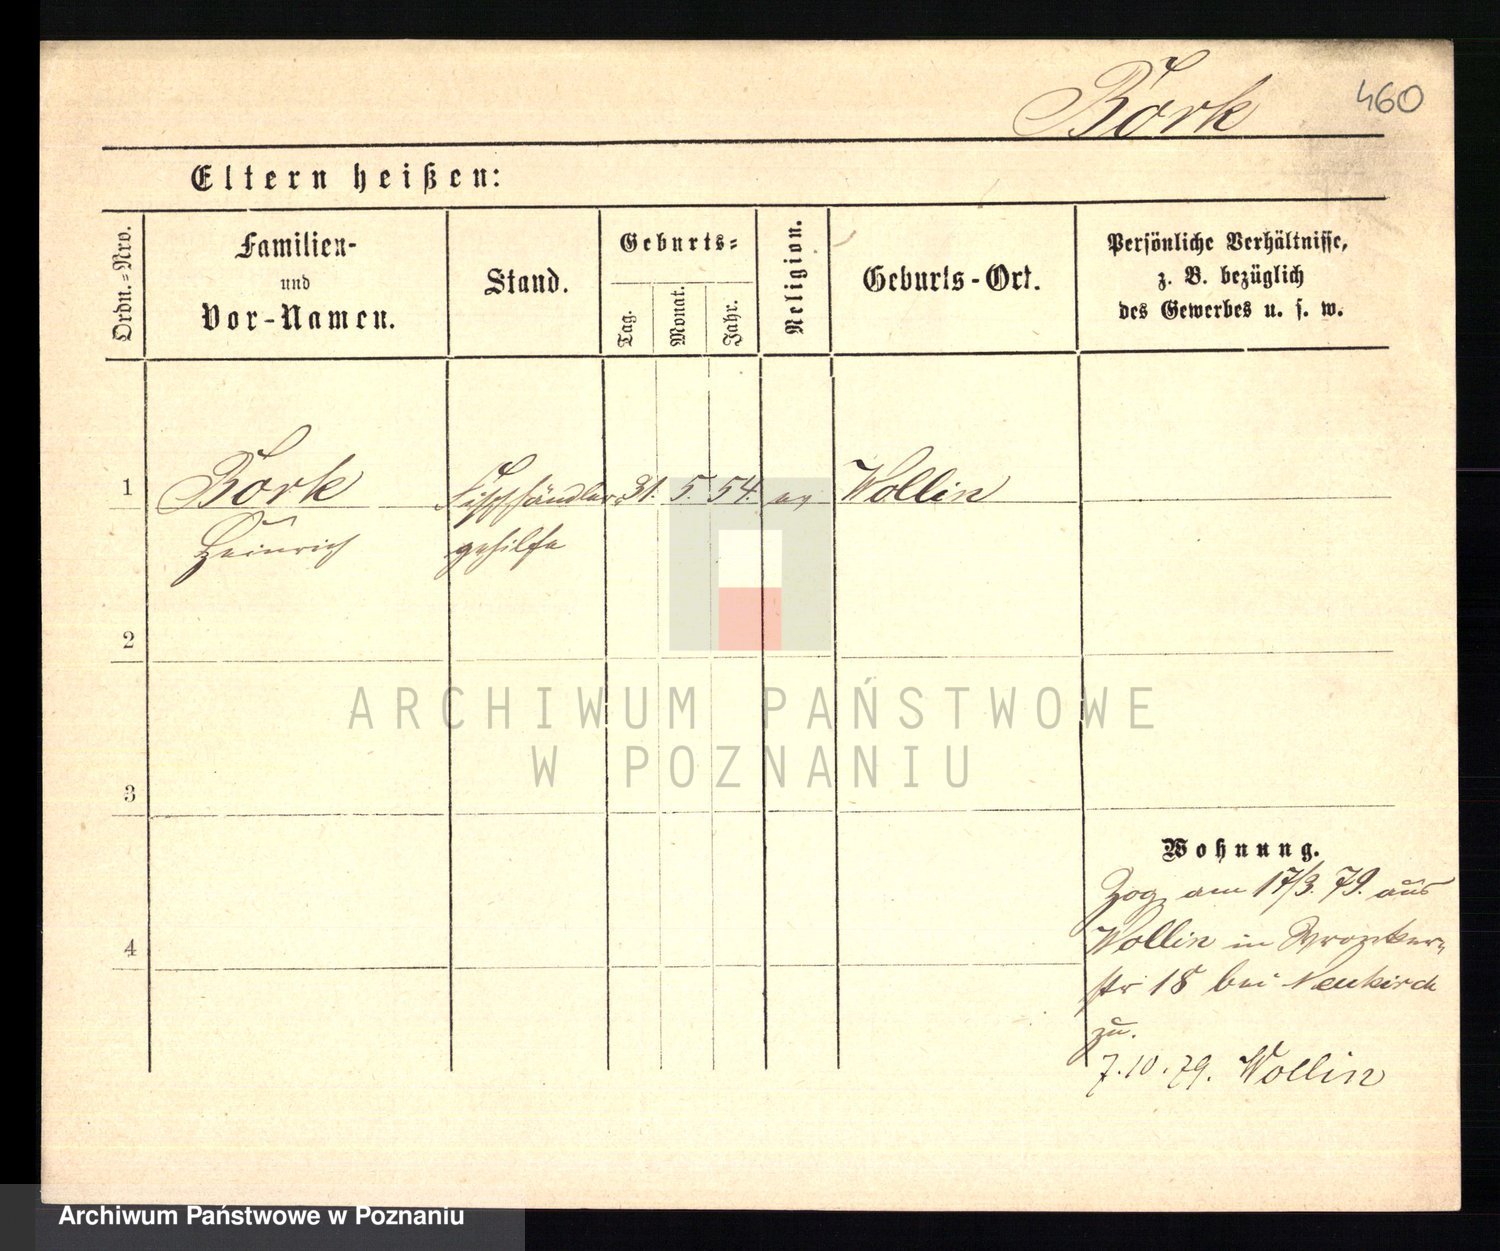 Bork
460
Eltern heißen:
Ordn.=Nro.
Familien-
und
Vor-Namen.
Stand.
Geburts=
Tag.
Monat.
Jahr.
Religion.
Geburts-Ort.
Persönliche Verhältnisse,
z. B. bezüglich
des Gewerbes u. s. w.
1 Bork Fischhändler 31. 5. 54. ev Wollin
Heinrich gehilfe
2
3
4
Wohnung.
Zog am 17/3. 79. aus
Wollin in Wronker-
str 18 bei Neukirch
zu.
7.10.79. Wollin
ARCHIWUM PAŃSTWOWE
W POZNANIU
Archiwum Państwowe w Poznaniu